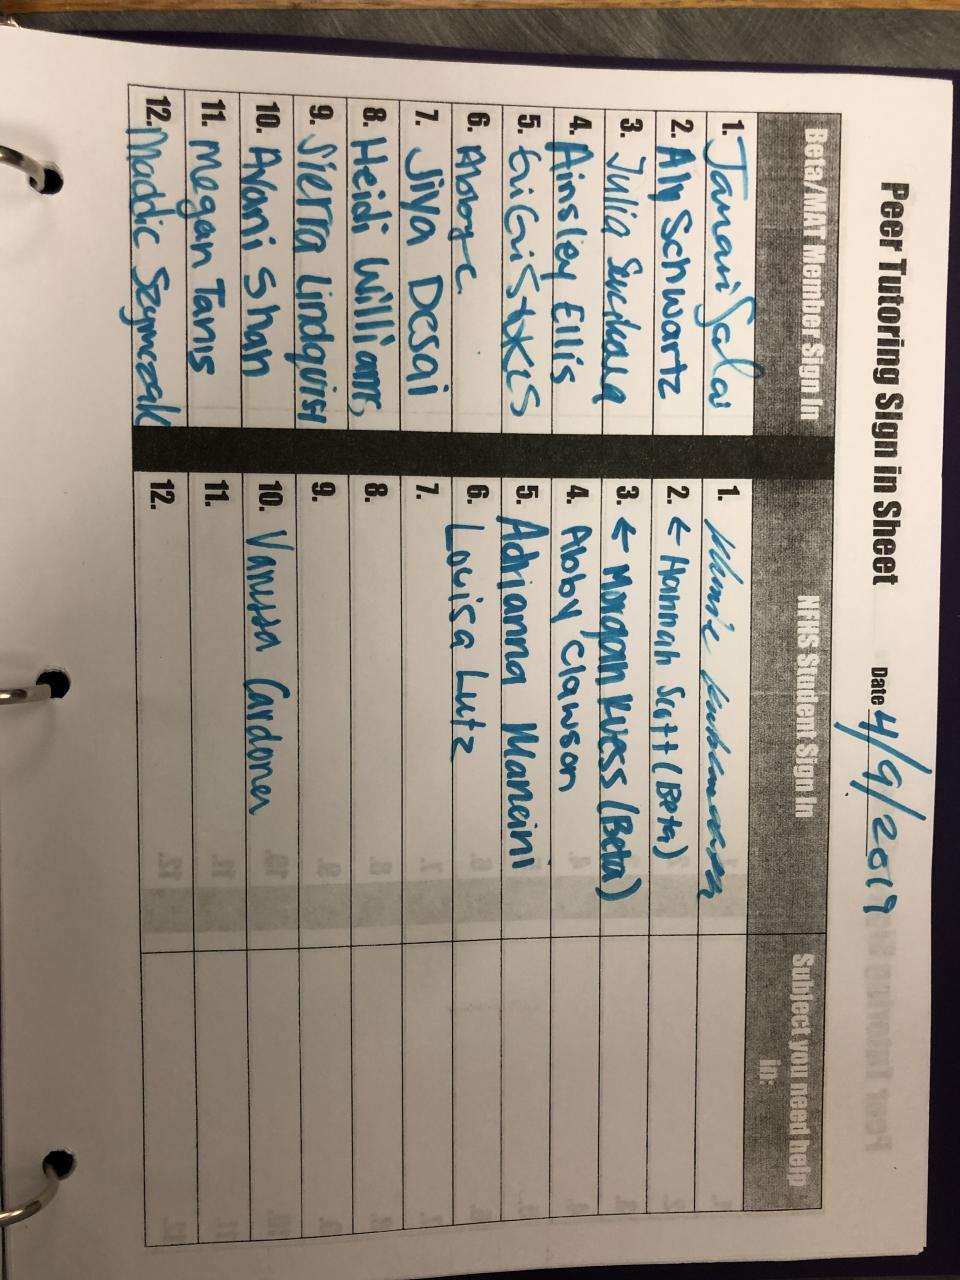 Peer Tutoring Sign in Sheet Date 4/9/2019
Beta/MAT Member Sign In NFHS Student Sign In Subject you need help in:
1. 1.
2. Aly Schwartz 2. ← Hannah Scott (Beta)
3. Julia 3. ← Morgan Kuess (Beta)
4. Ainsley Ellis 4. Abby Clawson
5. 5. Adrianna Mancini
6. Abby C. 6. Louisa Lutz
7. Jiya Desai 7.
8. Heidi Williams 8.
9. Sierra Lindquist 9.
10. Avani Shah 10. Vanessa Cardoner
11. Megan Tanis 11.
12. Maddie Szymczak 12.